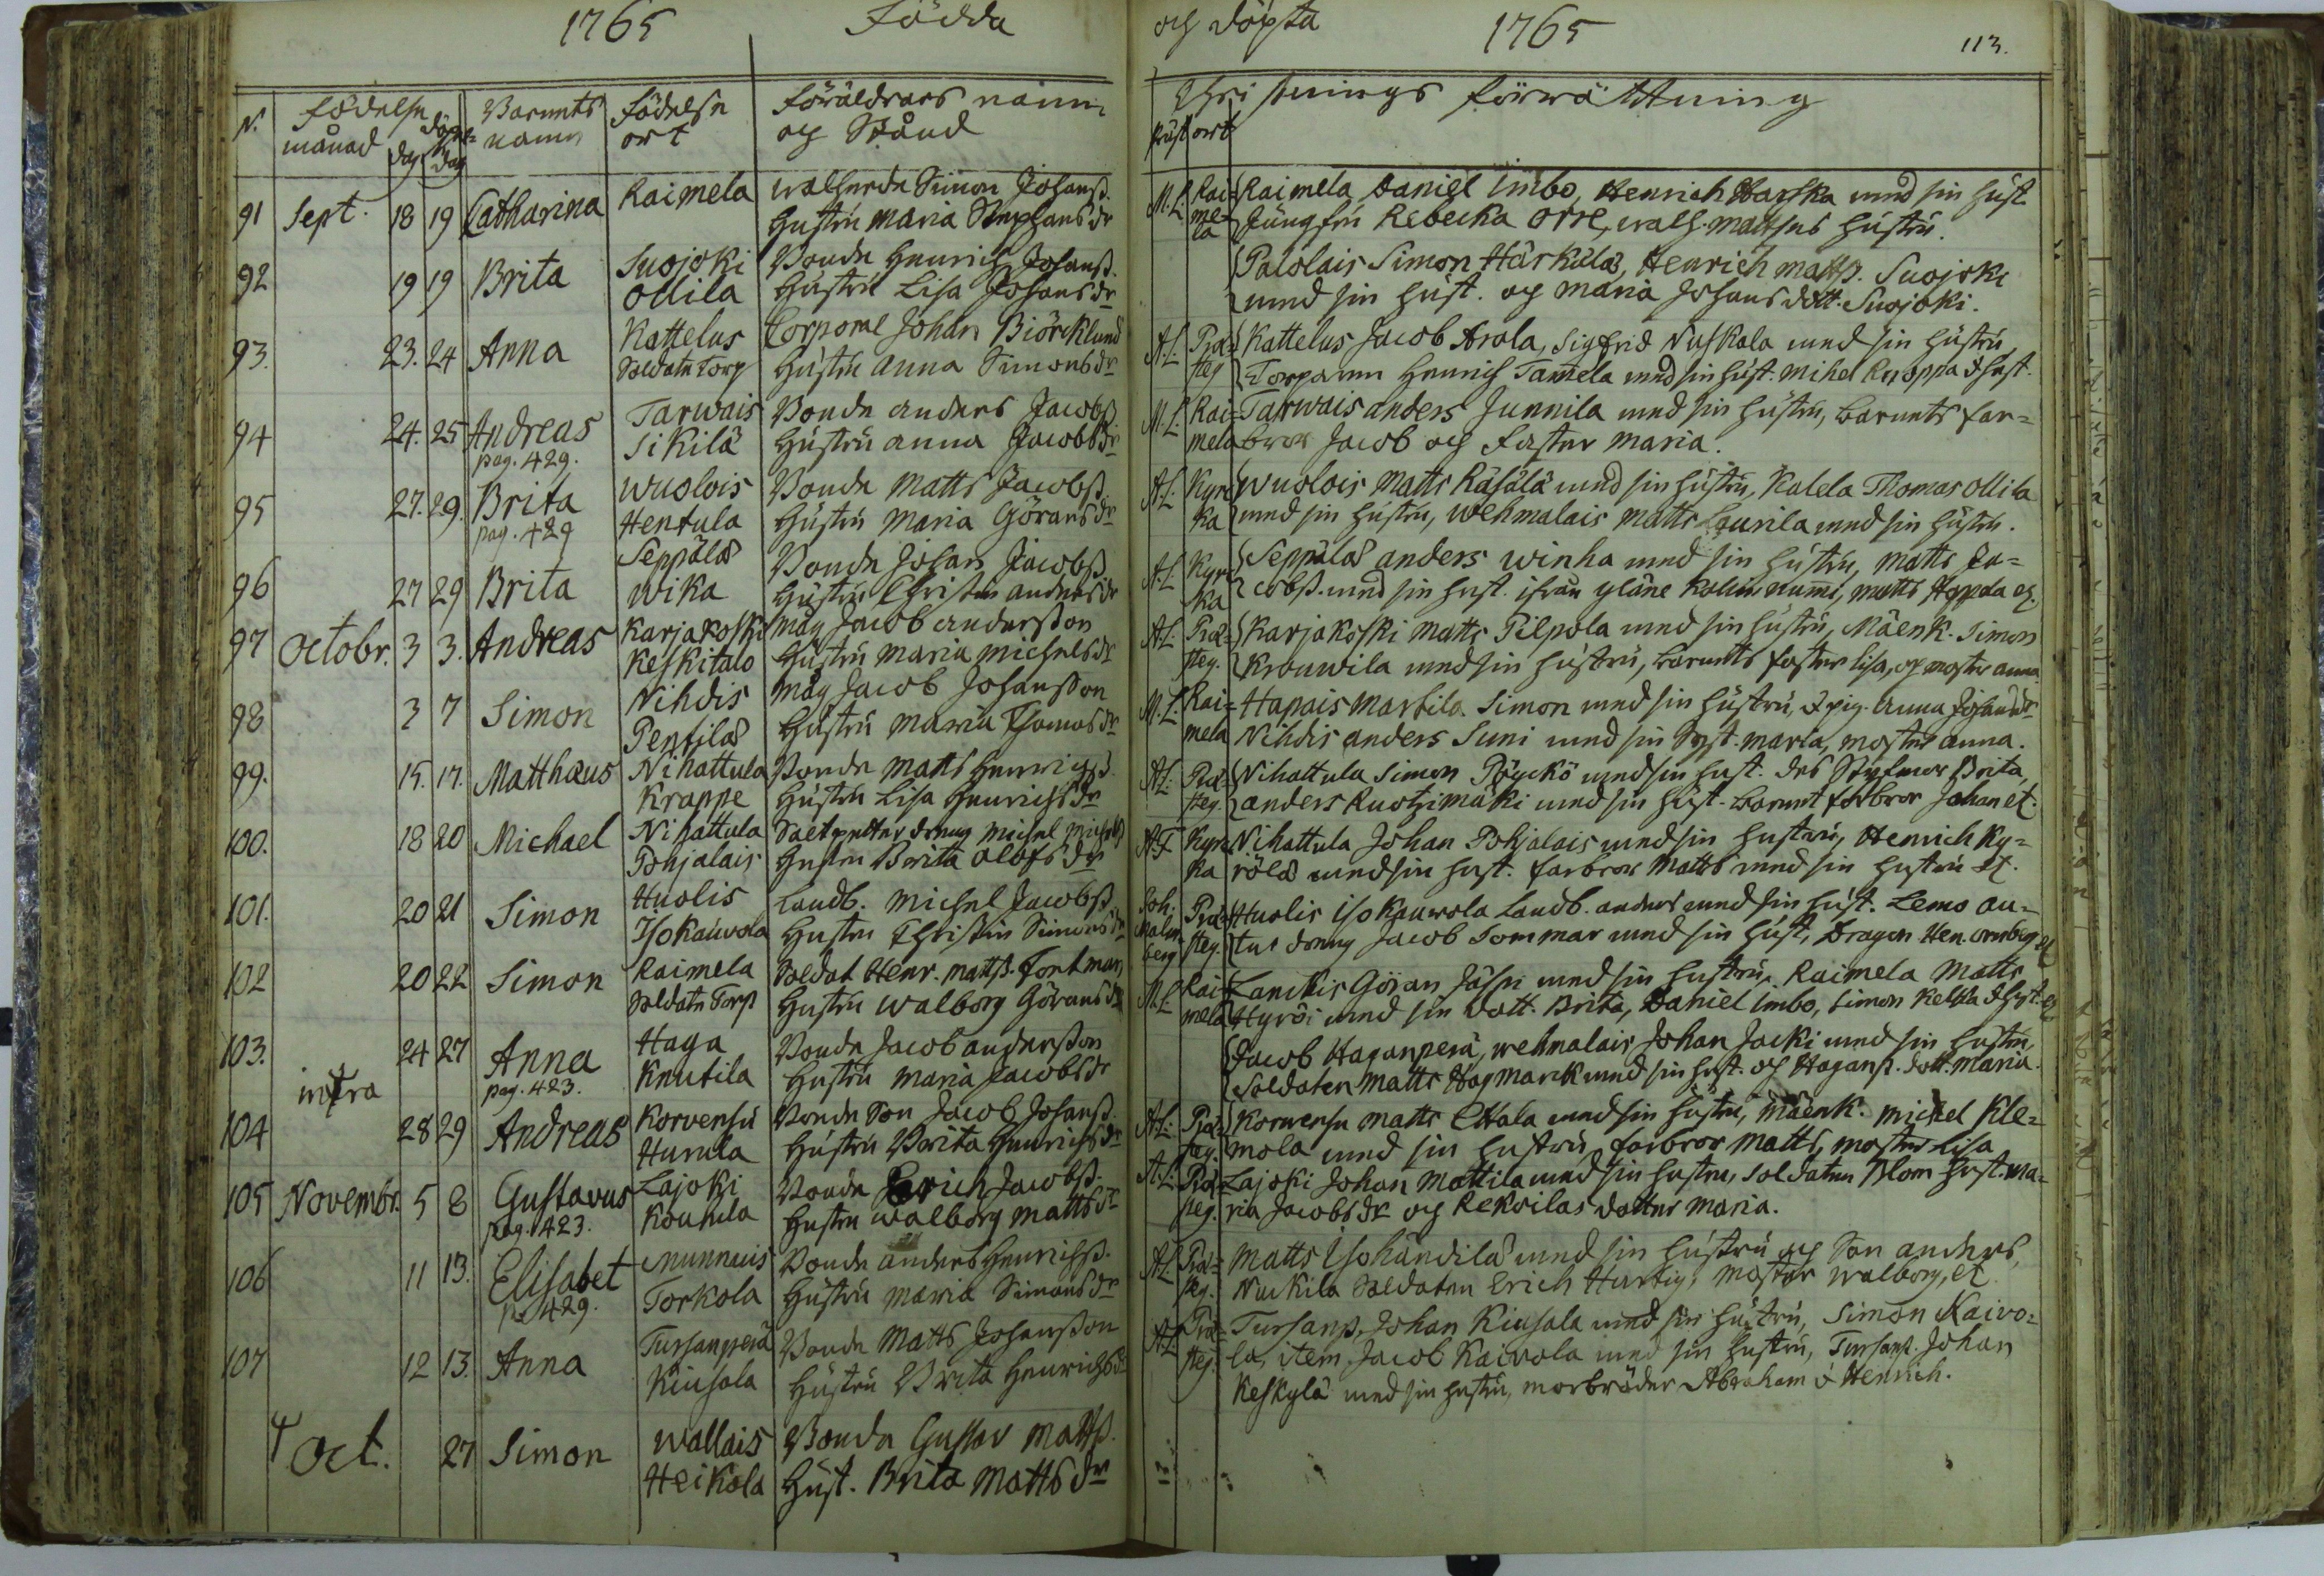 1765 Födda
N. födelse månad dag döpelse dag Barnets namn födelse ort föräldrars namn och Stånd
91 Sept. 18 19 Catharina Raimela Simon Johanß.
Hustru Maria Stephansdr
92 19 19 Brita Suojoki Bonde Henrich Johanß.
Ollila Hustru Lisa Johansdr
93. 23. 24 Anna Kattelus Corporal Johan Biörcklund
Soldate Torp Hustru Anna Simonsdr
94 24. 25 Andreas Tarwais Bonde anders Jacobß
pag. 429. Sikilä Hustru anna Jacobsdr
95 27. 29. Brita Wuolois Bonde Matts Jacobß.
pag. 429 Hentula Hustru Maria Göransdr
96 27 29 Brita Seppälä Bonde Johan Jacobß
Wika Hustru Christin andersdr
97 Octobr. 3 3. Andreas Karjakoski Måg Jacob andersson
Keskitalo Hustru Maria Michelsdr
98 3 7 Simon Nihdis Måg Jacob Johansson
Pentilä Hustru Maria Thomasdr
99. 15. 17. Matthæus Nihattula Bonde Matts Henrichß.
Krappe Hustru Lisa Henrichsdr
100. 18 20 Michael Nihattula Saltpetter dreng Michel Michelß
Pohjalais Hustru Brita Olofsdr
101. 20 21 Simon Huolis Landb. Michel Jacobß.
Isokauwola Hustru Christin Simonsdr
102 20 22 Simon Raimela Soldat Henr. Mattß. Fontman
Soldate Torp Hustru Walborg Göransdr
103. 24 27 Anna Haga Bonde Jacob andersson
intra pag. 423. Knutila Hustru Maria Jacobsdr
104 28 29 Andreas Korvensu Bonde Son Jacob Johanß.
Hurula Hustru Brita Henrichsdr
105 Novembr. 5 8 Gustavus Lajoki Bonde Erich Jacobß.
pag. 423. Kouhila Hustru Walborg Mattsdr
106 11 13. Elisabet Munnuis Bonde anders Henrichß.
p. 429. Torkola Hustru Maria Simonsdr
107 12 13. Anna Tursanperä Bonde Matts Johansson
Kiusala Hustru Brita Henrichsdr
Oct. 27 Simon Wallais Bonde Gustav Mattß.
Heikola Hust. Brita Mattsdr
och döpta 1765 113.
Christnings förrättning
präst ort
M. L. Raimela Raimela Daniel Imbo, Henrich Harska med sin hust
Jungfru Rebecka Orre, walf. Mattsses hustru.
Palolais Simon Härkälä, Henrich Mattß. Suojoki
med sin hust. och Maria Johansdott. Suojoki.
A. L. Præsteg Kattelus Jacob Arola, Sigfrid Nuskala med sin hustru,
Torparen Henrich Tammela med sin hust. Mihel Ruoppa & hust.
M. L. Raimela Tarwais anders Junnila med sin hustru, barnets far=
bror Jacob och faster Maria.
A. L. Kyrka Wuolois Matts Räsälä med sin hustru, Kalela Thomas Ollila
med sin hustru, Wehmalais Matts Laurila med sin hustru.
A. L. Kyrka Seppälä anders Winha med sin hustru, Matts Ja=
cobß. med sin hust. ifrån Yläne Kolwanummi, Matts Hoppda
A. L. Præsteg. Karjakoski Matts Pilpola med sin hustru, Mäenk. Simon
Krouwila med sin hustru, barnets faster Lisa, och moster anna
M. L. Raimela Hapais Martila Simon med sin hustru, & pig. Anna Johansdr
Nihdis anders Suni med sin Syst. Maria, moster anna.
A. L. Præsteg. Nihattula Simon Pöyckö med sin hust. des Styfmor Brita,
anders Ruotzimäki med sin hust. barnet farbror Johan etc.
A. F. Kyrka Nihattula Johan Pohjalais med sin hustru, Henrich Ky=
rölä med sin hust. farbror Matts med sin hustru etc.
Joh. Malmberg Præsteg. Huolis Isokauwola Landb. anders med sin hust. Lemo
dreng Jacob Tommar med sin hust, Dragon Hen. Ornberg etc
M. L. Raimela Lanckis Göran Jåssi med sin hustru, Raimela Matts
Hyröi med sin dott. Brita, Daniel Imbo, Simon Kelhla & hust. etc
Jacob Haganperä, Wehmalais Johan Jacki med sin hustru,
Soldaten Matts Hagmarck med sin hust. och Haganp. dott. Maria.
A. L. Præsteg. Korvensu Matts Ettala med sin hustru, Mäenk. Michel Kle=
mola med sin hustru, farbror Matts, moster Lisa
A. L. Præsteg. Lajoki Johan Mattila med sin hustru, Soldaten Blom hust. Ma=
ria Jacobsdr och Rekoilas dotter Maria.
A. L. Præsteg. Matts Isohandila med sin hustru och Son anders,
Nuckila Soldaten Erich Hurtig, moster Walborg, etc
A. L. Præsteg. Tursanp. Johan Kiusala med sin hustru, Simon Kaivo=
la, item Jacob Kaivola med sin hustru, Tursanp. Johan
Keskylä med sin hustru, morbröder Abraham & Henrich.